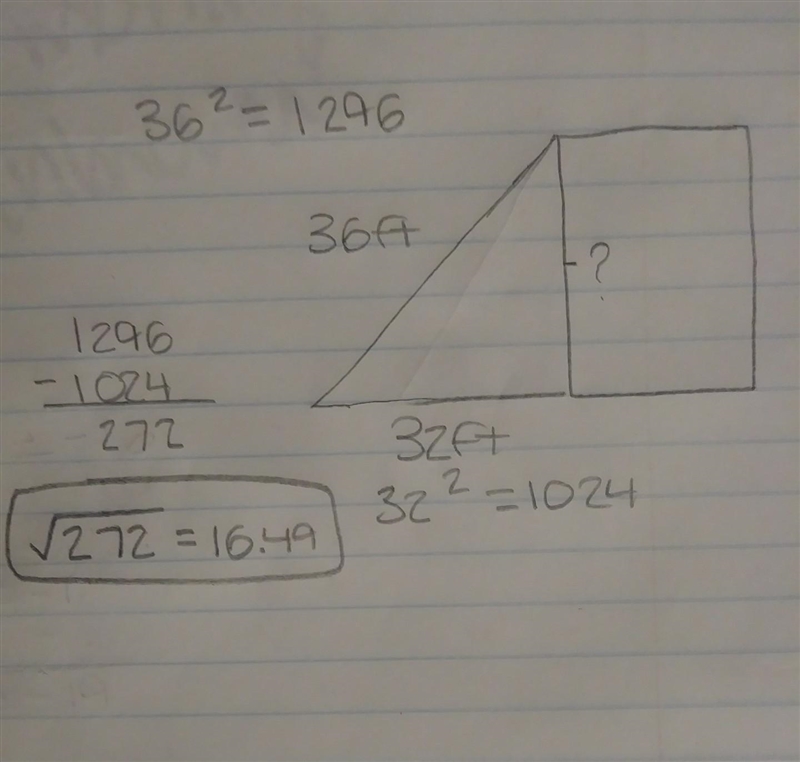 36² = 1296
36ft
?
1296
- 1024
272
32ft
32² = 1024
√272 = 16.49